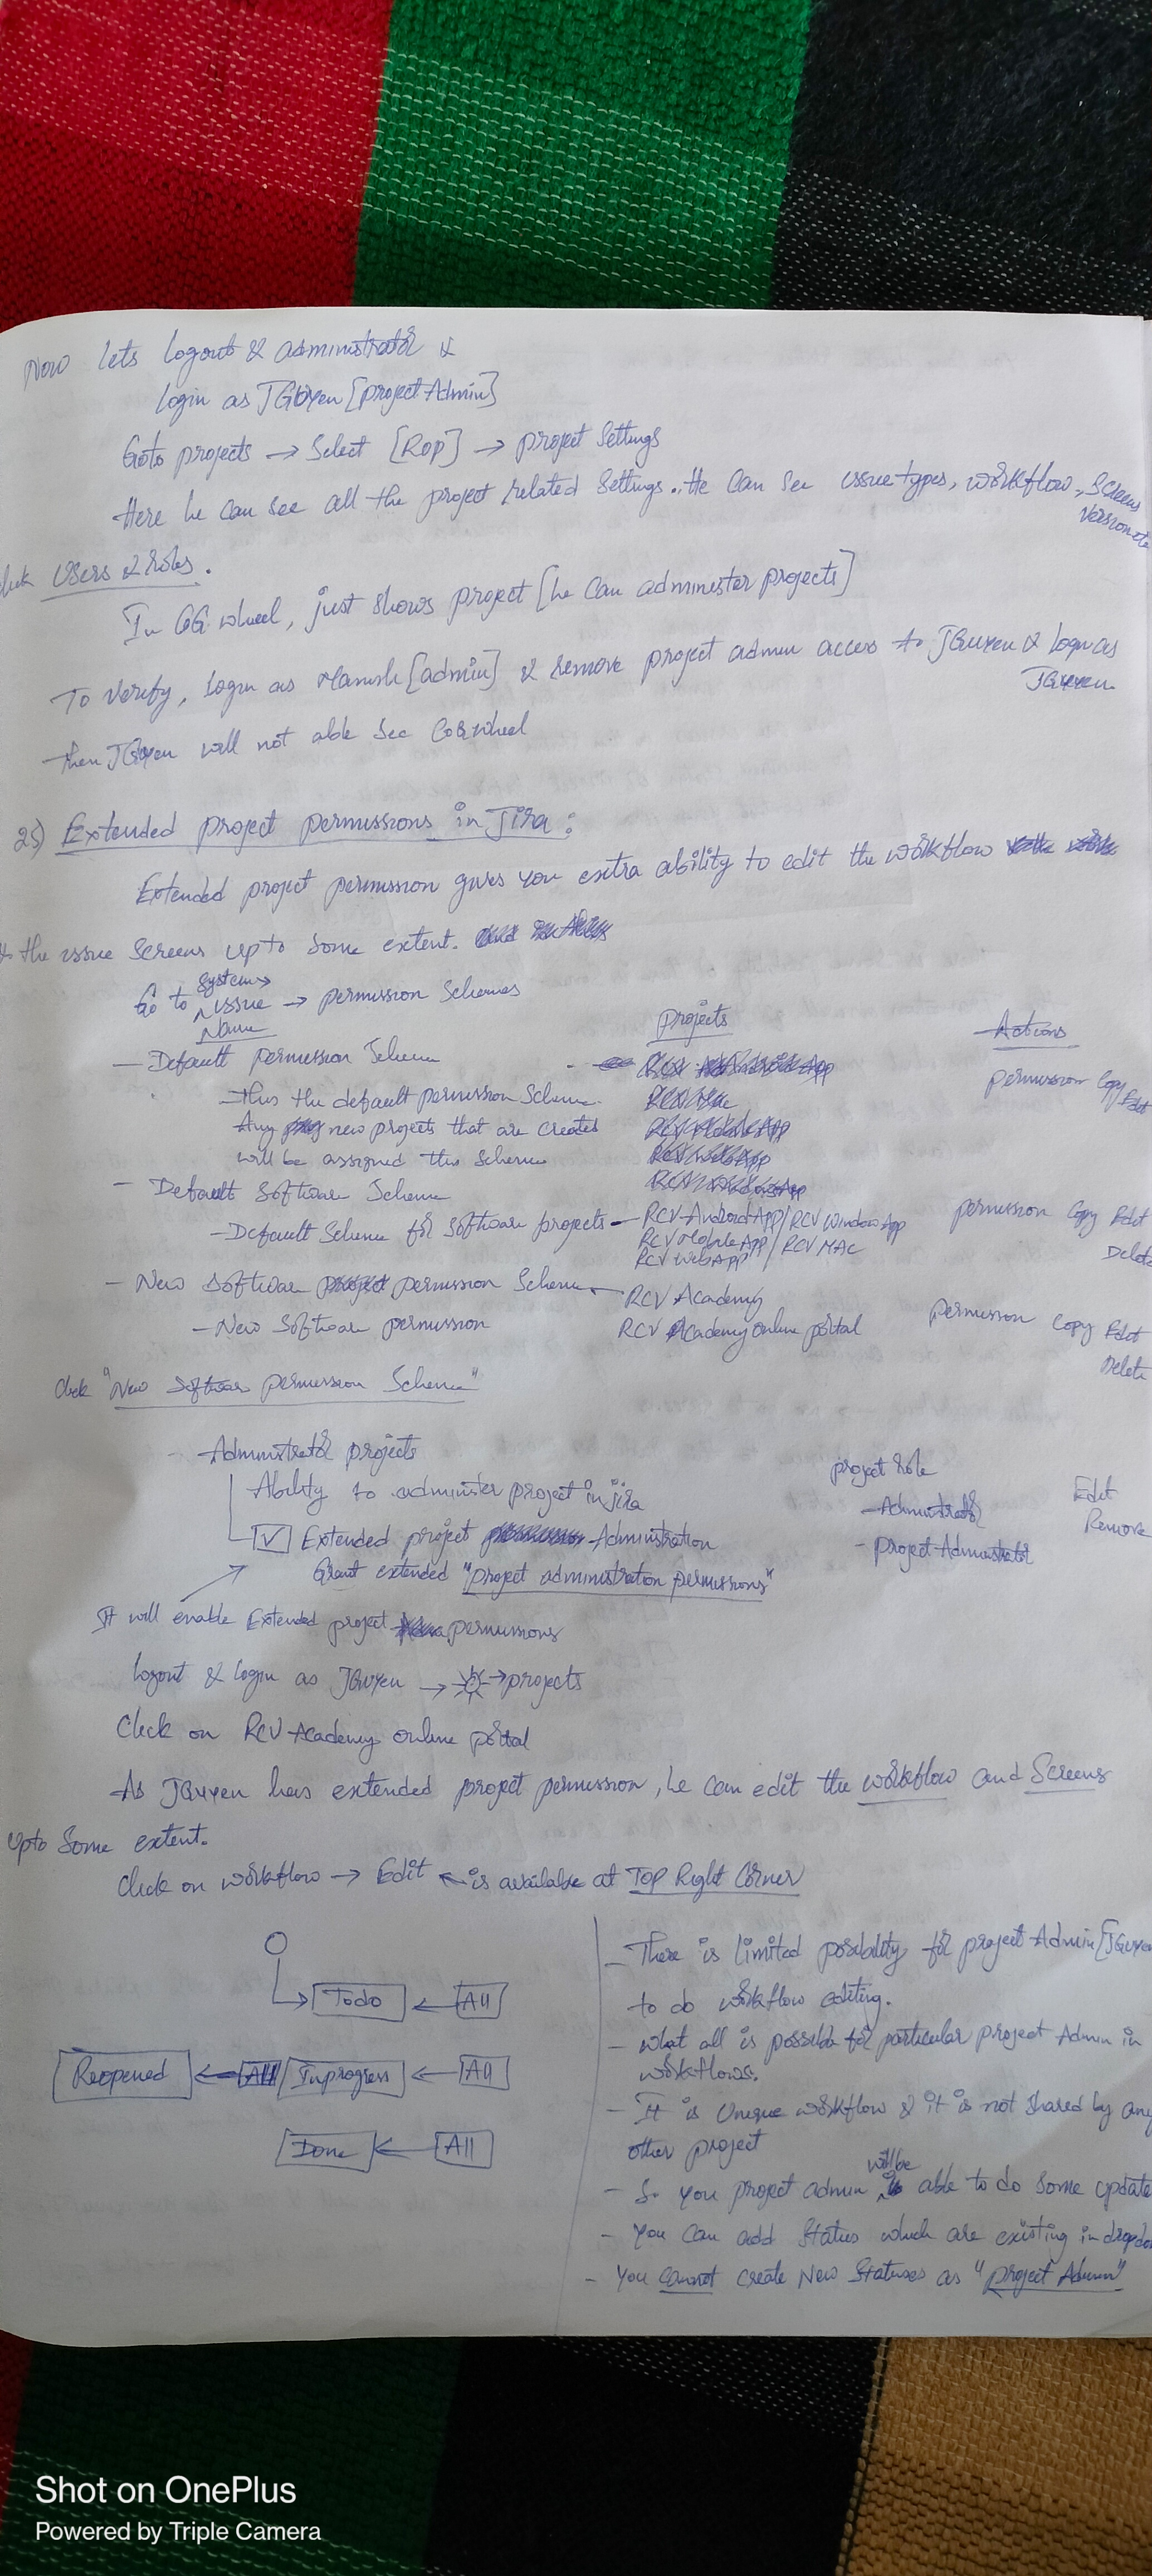 Now lets logout & administrator &
login as JGuyen [project Admin]
Goto projects → Select [Rop] → project Settings
Here he can see all the project related Settings. He Can See issue types, workflow, Screens
Version etc
Click Users & Roles.
In CG wheel, just shows project [he can administer projects]
To Verify, login as Manish [admin] & remove project admin access to JGuyen & Login as
JGuyen.
then JGuyen will not able See Cog wheel
25) Extended project permissions in Jira:
Extended project permission gives you extra ability to edit the workflow
& the issue Screens upto Some extent.
System →
Go to issue → permission Schemes
Name
Projects
Actions
— Default permission Scheme
permission Copy Edit
This the default permission Scheme.
Any new projects that are created
will be assigned this Scheme
— Default Software Scheme
— Default Scheme for Software projects — RCV Android App / RCV Window App
permission Copy Edit
RCV Mobile App / RCV MAC
Delete
RCV Web App
— New Software permission Scheme — RCV Academy
— New Software permission
RCV Academy Online portal
permission Copy Edit
Delete
Click "New Software permission Scheme"
— Administrator projects
project Role
Ability to administer project in jira
— Administrator
Edit
Remove
[✓] Extended project Administration
— Project Administrator
Grant extended "project administration permissions"
It will enable Extended project permissions
Logout & login as JGuyen → → projects
Click on RCV Academy online portal
As JGuyen has extended project permission, he can edit the workflow and Screens
Upto Some extent.
Click on workflow → Edit ← is available at Top Right Corner
Todo ← All
Reopened ← Inprogress ← All
Done ← All
— There is limited posibility for project Admin [JGuyen
to do workflow editing.
— what all is possible for particular project Admin in
workflows.
— It is Unique workflow & it is not shared by any
other project
will be
— So you project admin able to do Some update
— You Can add Status which are existing in dropdo
— You Cannot create New Statuses as "project Admin"
Shot on OnePlus
Powered by Triple Camera